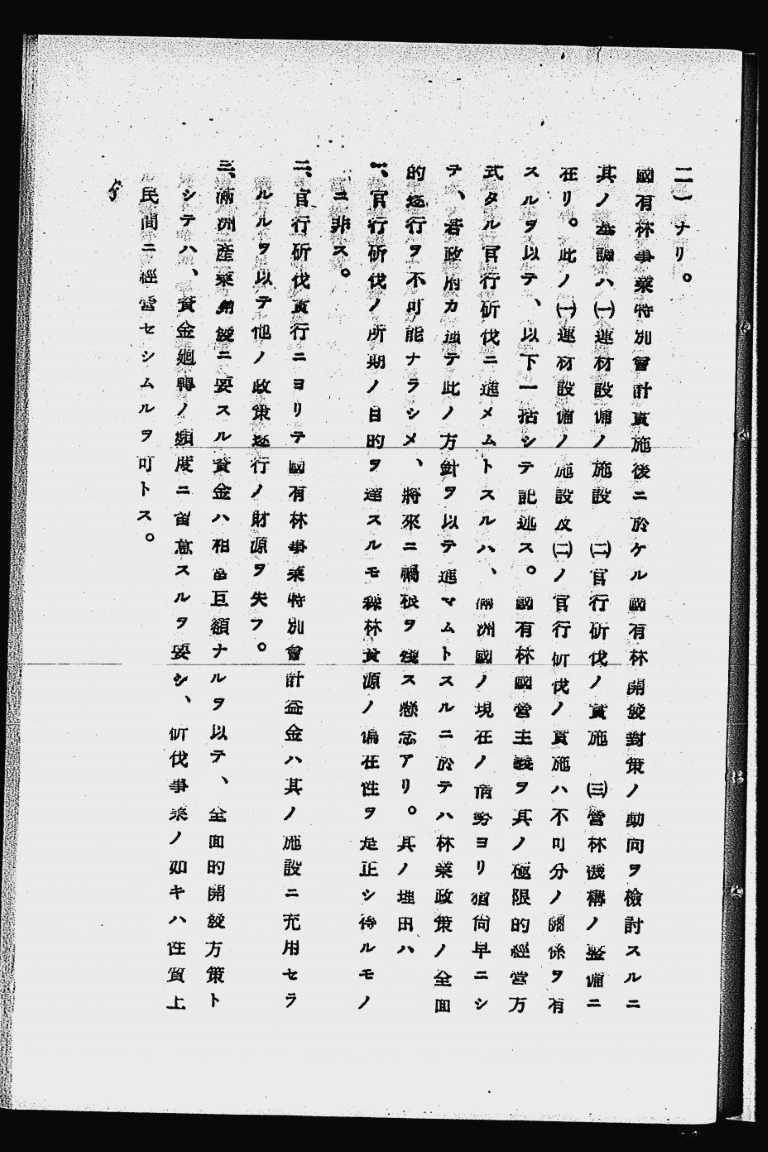 二一ナリ。
國有林事業特別會計實施後ニ於ケル國有林開發對策ノ動向ヲ檢討スルニ
其ノ基調ハ㈠運材設備ノ施設　㈡官行斫伐ノ實施　㈢營林機構ノ整備ニ
在リ。此ノ㈠運材設備ノ施設及㈡ノ官行斫伐ノ實施ハ不可分ノ關係ヲ有
スルヲ以テ、以下一括シテ記述ス。國有林國營主義ヲ其ノ極限的經營方
式タル官行斫伐ニ進メムトスルハ、滿洲國ノ現在ノ情勢ヨリ猶尚早ニシ
テ、若政府カ強テ此ノ方針ヲ以テ進マムトスルニ於テハ林業政策ノ全面
的遂行ヲ不可能ナラシメ、將來ニ禍根ヲ殘ス懸念アリ。其ノ理由ハ
一、官行斫伐ノ所期ノ目的ヲ達スルモ森林資源ノ偏在性ヲ是正シ得ルモノ
ニ非ス。
二、官行斫伐實行ニヨリテ國有林事業特別會計益金ハ其ノ施設ニ充用セラ
ルルヲ以テ他ノ政策遂行ノ財源ヲ失フ。
三、滿洲產業開發ニ要スル資金ハ相當巨額ナルヲ以テ、全面的開發方策ト
シテハ、資金廻轉ノ頻度ニ留意スルヲ要シ、斫伐事業ノ如キハ性質上
民間ニ經營セシムルヲ可トス。